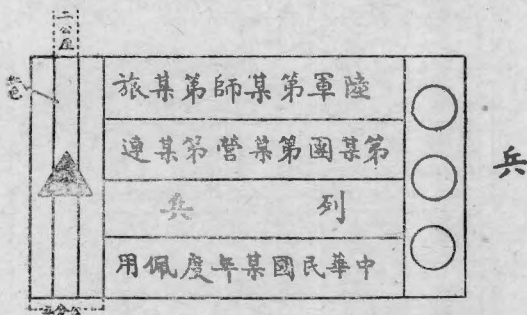 二公厘
兵
陸軍第某師第某旅
第某團第某營第某連
列兵
中華民國某年度佩用